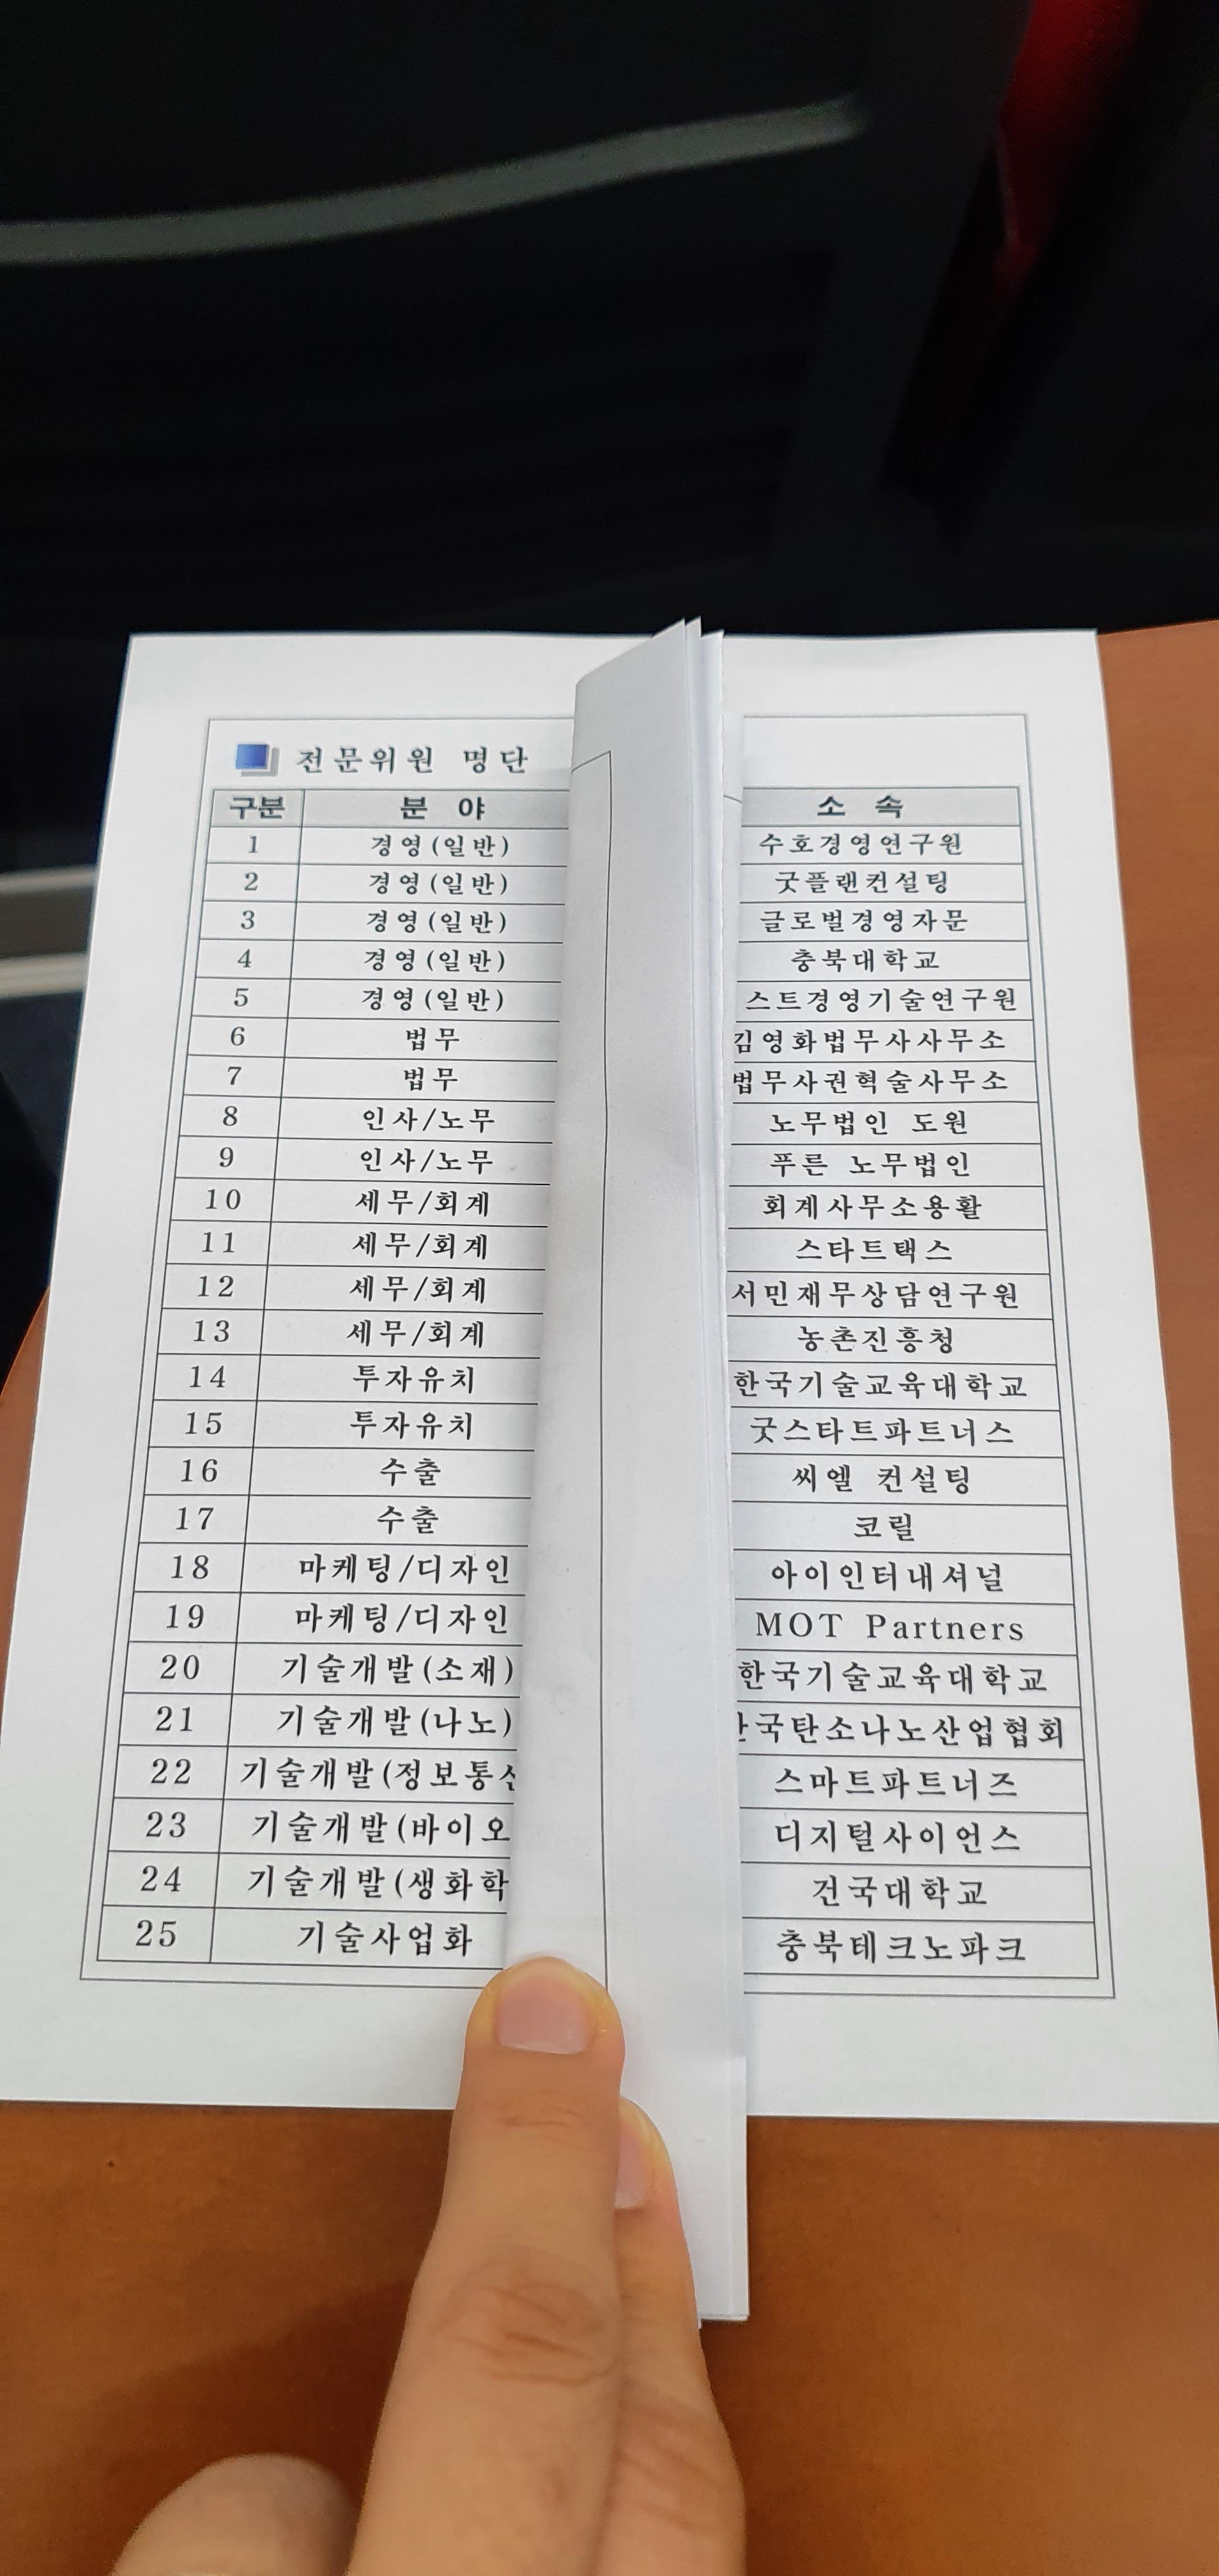 전문위원 명단
구분 분 야 소 속
1 경영(일반) 수호경영연구원
2 경영(일반) 굿플랜컨설팅
3 경영(일반) 글로벌경영자문
4 경영(일반) 충북대학교
5 경영(일반) 스트경영기술연구원
6 법무 김영화법무사사무소
7 법무 법무사권혁술사무소
8 인사/노무 노무법인 도원
9 인사/노무 푸른 노무법인
10 세무/회계 회계사무소용활
11 세무/회계 스타트택스
12 세무/회계 서민재무상담연구원
13 세무/회계 농촌진흥청
14 투자유치 한국기술교육대학교
15 투자유치 굿스타트파트너스
16 수출 씨엘 컨설팅
17 수출 코릴
18 마케팅/디자인 아이인터내셔널
19 마케팅/디자인 MOT Partners
20 기술개발(소재) 한국기술교육대학교
21 기술개발(나노) 한국탄소나노산업협회
22 기술개발(정보통신 스마트파트너즈
23 기술개발(바이오 디지털사이언스
24 기술개발(생화학 건국대학교
25 기술사업화 충북테크노파크